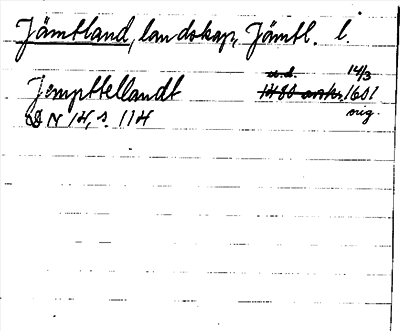 Jämtland, landskap, Jämtl. l.
Jempttellandt u.d. 14/3
1480 avskr. 1601
DN 14, s. 114 orig.